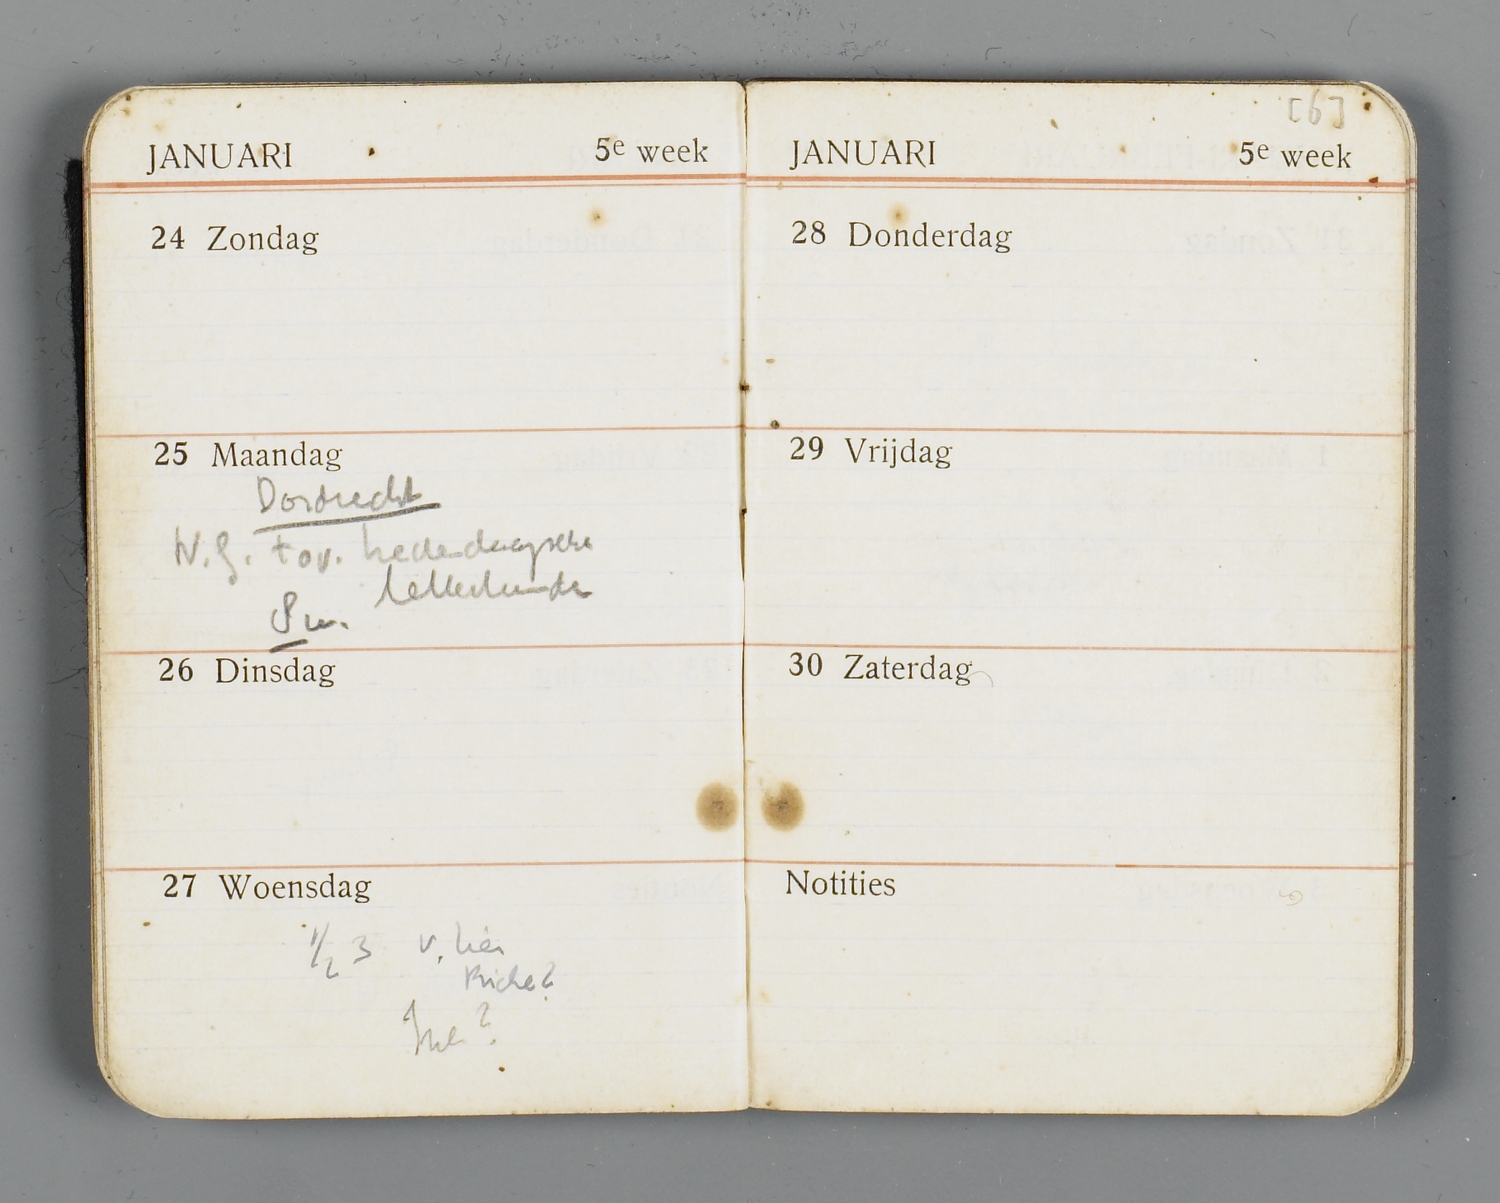 JANUARI 5e week
24 Zondag
25 Maandag
Dordrecht
W.G. t.o.v. hedendaagsche
letterkunde
8 u.
26 Dinsdag
27 Woensdag
1/2 3 v.
[6]
JANUARI 5e week
28 Donderdag
29 Vrijdag
30 Zaterdag
Notities